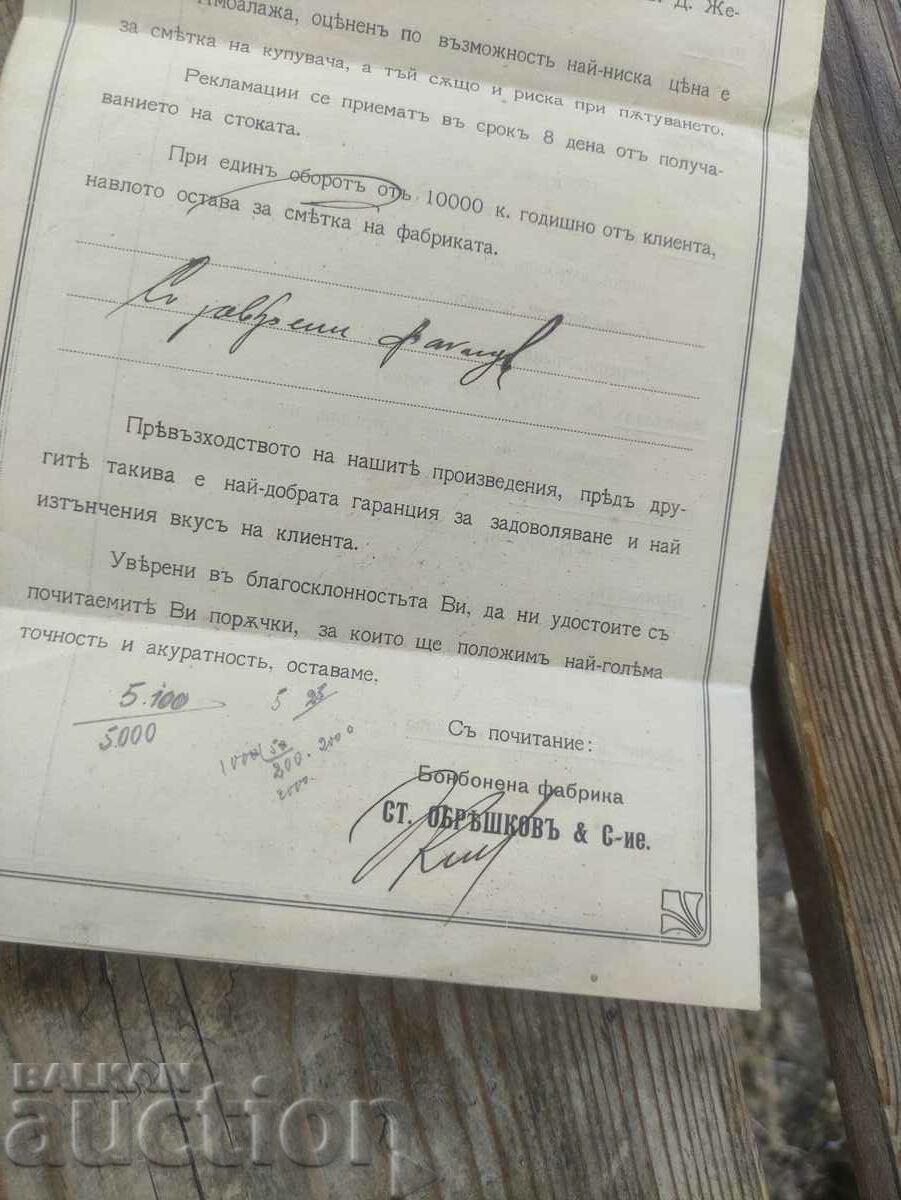 Д. Же-
Амбалажа, оцѣненъ по възможность най-ниска цѣна е
за смѣтка на купувача, а тъй сѫщо и риска при пѫтуването.
Рекламации се приематъ въ срокъ 8 дена отъ получа-
ванието на стоката.
При единъ оборотъ отъ 10000 к. годишно отъ клиента,
навлото остава за смѣтка на фабриката.
Прѣвъзходството на нашитѣ произведения, прѣдъ дру-
гитѣ такива е най-добрата гаранция за задоволяване и най
изтънчения вкусъ на клиента.
Увѣрени въ благосклонностьта Ви, да ни удостоите съ
почитаемитѣ Ви порѫчки, за които ще положимъ най-голѣма
точность и акуратность, оставаме.
5.100
5.000
5 25
200. 2000
2000.
Съ почитание:
Бонбонена фабрика
СТ. ОБРѢШКОВЪ & С-ие.
BALKAN
auction